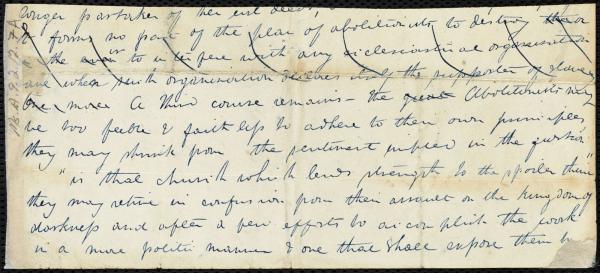 longer partaker of her evil deeds,
It forms no part of the plan of abolitionists to destroy
the or to interfere with any ecclesiastical organisation
save when such organisation becomes the supporter of slavery
One more A third course remains - the Abolitionists may
be too feeble & faithless to adhere to their own principles
they may shrink from the sentiment implied in the question
"is that church which lends strength to the spoiler thine"
they may retire in confusion from their assault on the kingdom of
darkness and after a few efforts to accomplish the work
in a more politic manner & one that shall expose them